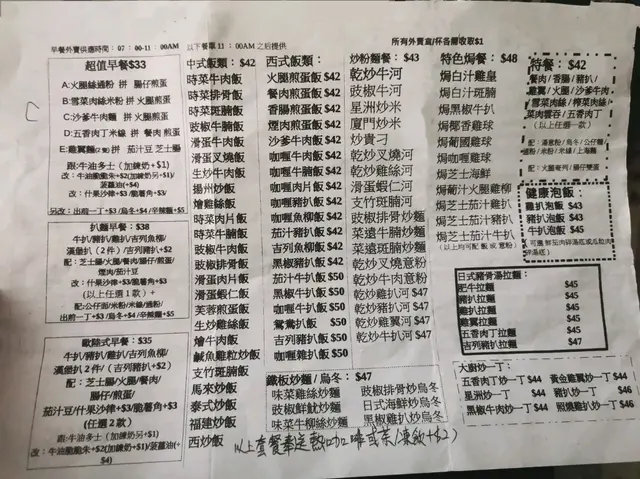 早餐外賣供應時間：07：00-11：00AM 以下餐單11：00AM之后提供
所有外賣盒/杯各需收取$1
超值早餐$33
A:火腿絲通粉 拼 腸仔煎蛋
B:雪菜肉絲米粉 拼 火腿煎蛋
C:沙爹牛肉麵 拼 火腿煎蛋
D:五香肉丁米線 拼 餐肉 煎蛋
E:雞翼麵(2隻) 拼 茄汁豆 芝士腸
跟:牛油多士（加鍊奶+$1）
改：牛油脆脆朱+$2(加鍊奶+$1)/
菠蘿油(+$4)
改：什果沙律+$3/脆薯角+$3/
另改：出前一丁+$3/烏冬+$4/辛辣麵+$5
扒麵早餐：$38
牛扒/豬扒/雞扒/吉列魚柳/
漢堡扒（2件）/吉列豬扒+$2
配：芝士腸/火腿/餐肉/腸仔/煎蛋/
煙肉/茄汁豆
改：什果沙律+$3/脆薯角+$3/
（以上任選1款）+
配:公仔面/米粉/米線/通粉/
出前一丁+$3/烏冬+$4/辛辣麵+$5
歐陸式早餐：$35
牛扒/豬扒/雞扒/吉列魚柳/
漢堡扒（2件）/吉列豬扒+$2
配：芝士腸/火腿/餐肉/
腸仔/煎蛋/
茄汁豆/什果沙律+$3/脆薯角+$3
（任選2款）
跟:牛油多士（加鍊奶另+$1）
改：牛油脆脆朱+$2(加鍊奶+$1)/菠蘿油(+
$4)
中式飯類：$42
時菜牛肉飯
時菜排骨飯
時菜斑腩飯
豉椒牛腩飯
滑蛋牛肉飯
滑蛋叉燒飯
生炒牛肉飯
揚州炒飯
時菜肉片飯
時菜牛腩飯
豉椒牛肉飯
豉椒排骨飯
滑蛋肉片飯
滑蛋蝦仁飯
芙蓉煎蛋飯
生炒雞絲飯
燴牛肉飯
鹹魚雞粒炒飯
支竹斑腩飯
馬來炒飯
泰式炒飯
福建炒飯
西炒飯
西式飯類：
火腿煎蛋飯 $42
餐肉煎蛋飯 $42
腸仔煎蛋飯 $42
煙肉煎蛋飯 $42
沙爹牛肉飯 $42
咖喱牛腩飯 $42
咖喱牛肉飯 $42
咖喱雞球飯 $42
咖喱魚柳飯 $42
茄汁魚柳飯 $42
吉列魚柳飯 $42
黑椒豬扒飯 $42
茄汁牛扒飯 $50
黑椒牛扒飯 $50
咖喱牛扒飯 $50
鴛鴦扒飯 $50
吉列豬扒飯 $50
咖喱雜扒飯 $50
炒粉麵餐：$43
乾炒牛河
豉椒牛河
星洲炒米
廈門炒米
炒貴刁
乾炒叉燒河
乾炒雞絲河
滑蛋蝦仁河
支竹斑腩河
豉椒排骨炒麵
菜遠牛肉炒麵
菜遠斑腩炒麵
乾炒叉燒意粉
乾炒牛肉意粉
乾炒雞扒河 $47
乾炒雞翼河 $47
乾炒牛扒河 $47
特色焗餐：$48
焗白汁雞皇
焗白汁斑腩
焗黑椒牛扒
焗椰香雞球
焗葡國雞球
焗咖喱雞球
焗芝士海鮮
焗葡汁火腿雞柳
焗芝士茄汁雞扒
焗芝士茄汁豬扒
焗芝士茄汁牛扒
（以上均可配 飯 或 意粉）
特餐：$42
餐肉/香腸/豬扒/
雞翼/火腿/沙爹牛肉
/雪菜肉絲/榨菜肉絲/
菜肉雲吞/五香肉丁
（以上任選一款）
配：火腿奄列/腸仔雙蛋
健康泡飯：
雞扒泡飯 $43
豬扒泡飯 $43
牛扒泡飯 $45
日式豬骨湯拉麵：
肥牛拉麵 $45
豬扒拉麵 $45
雞扒拉麵 $45
雞翼拉麵 $45
五香肉丁拉麵 $45
吉列豬扒拉麵 $45
鐵板炒麵/烏冬：$47
味菜雞絲炒麵 豉椒排骨炒烏冬
豉椒鮮魷炒麵 日式海鮮炒烏冬
味菜牛柳絲炒麵 黑椒雞扒炒烏冬
大廚炒一丁：
五香肉丁炒一丁 $44 黃金雞翼炒一丁 $44
星洲炒一丁 $44 豬扒炒一丁 $46
黑椒牛肉炒一丁 $44 照燒雞扒炒一丁 $46
以上套餐奉送熱咖啡或茶/凍飲+$2）